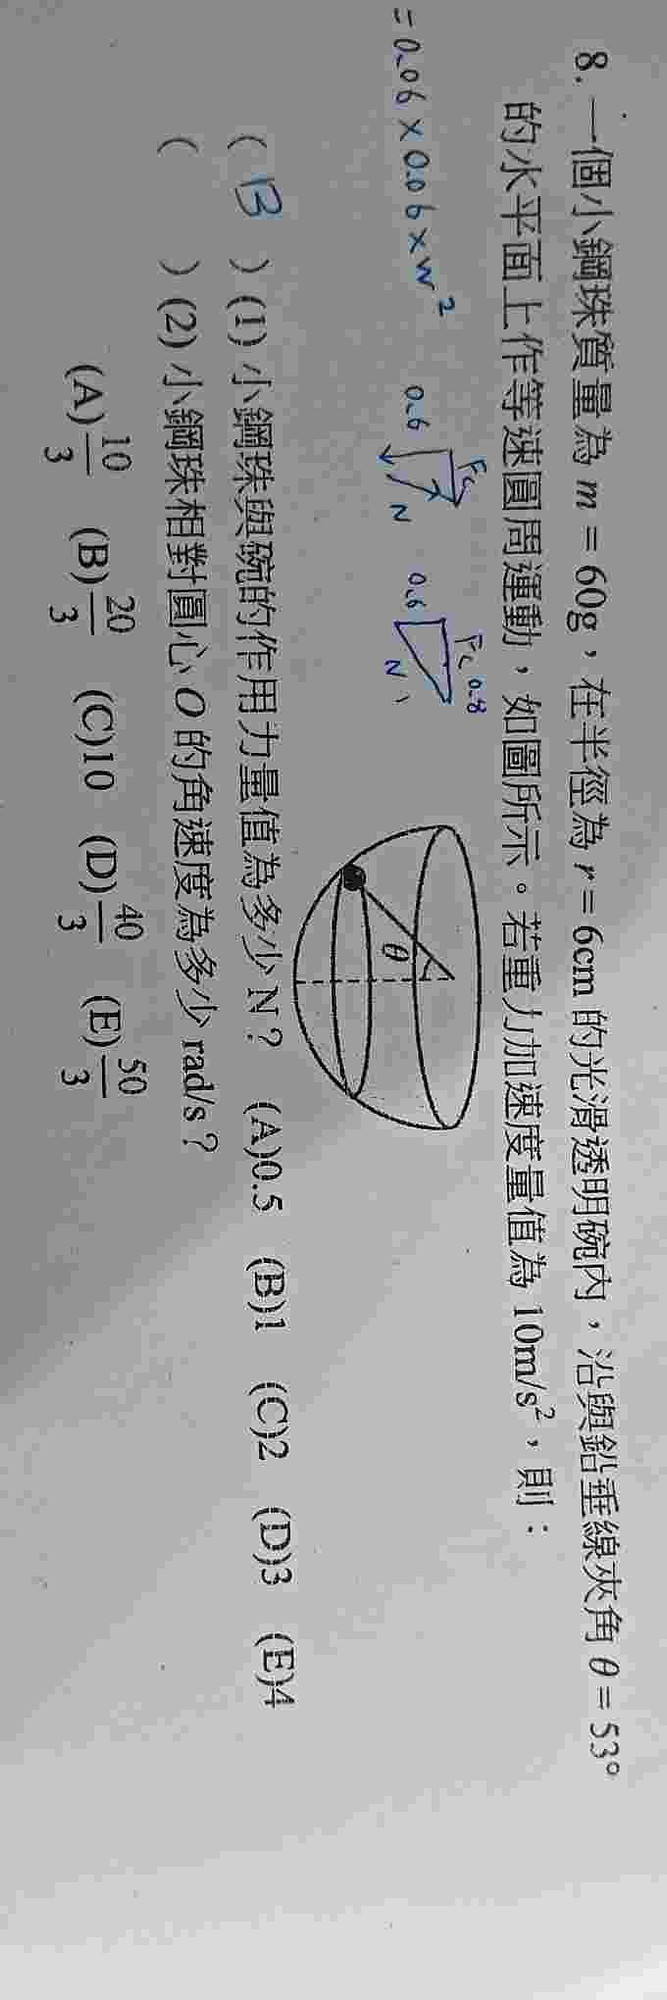 8. 一個小鋼珠質量為 m = 60g，在半徑為 r = 6cm 的光滑透明碗內，沿與鉛垂線夾角 θ = 53°
的水平面上作等速圓周運動，如圖所示。若重力加速度量值為 10m/s²，則：
= 0.06 × 0.06 × w²
0.6 Fc N
0.6 Fc 0.8 N 1
θ
( B ) (1) 小鋼珠與碗的作用力量值為多少 N？ (A)0.5 (B)1 (C)2 (D)3 (E)4
( ) (2) 小鋼珠相對圓心 O 的角速度為多少 rad/s？
(A) 10/3 (B) 20/3 (C)10 (D) 40/3 (E) 50/3